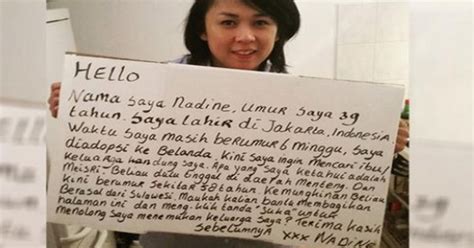 HELLO
Nama saya Nadine, umur saya 39
tahun. Saya lahir di Jakarta, Indonesia
Waktu saya masih berumur 6 minggu, saya
diadopsi ke Belanda. Kini saya ingin mencari ibu/
keluarga kandung saya. Apa yang saya ketahui adalah
Meisri - Beliau dulu tinggal di daerah Menteng. Dan
kini berumur sekitar 58 tahun. Kemungkinan Beliau
Berasal dari Sulawesi. Maukah kalian bantu membagikan
halaman ini dan meng-klik tanda "suka" untuk
Menolong saya menemukan keluarga saya? Terima kasih
sebelumnya xxx NADINE